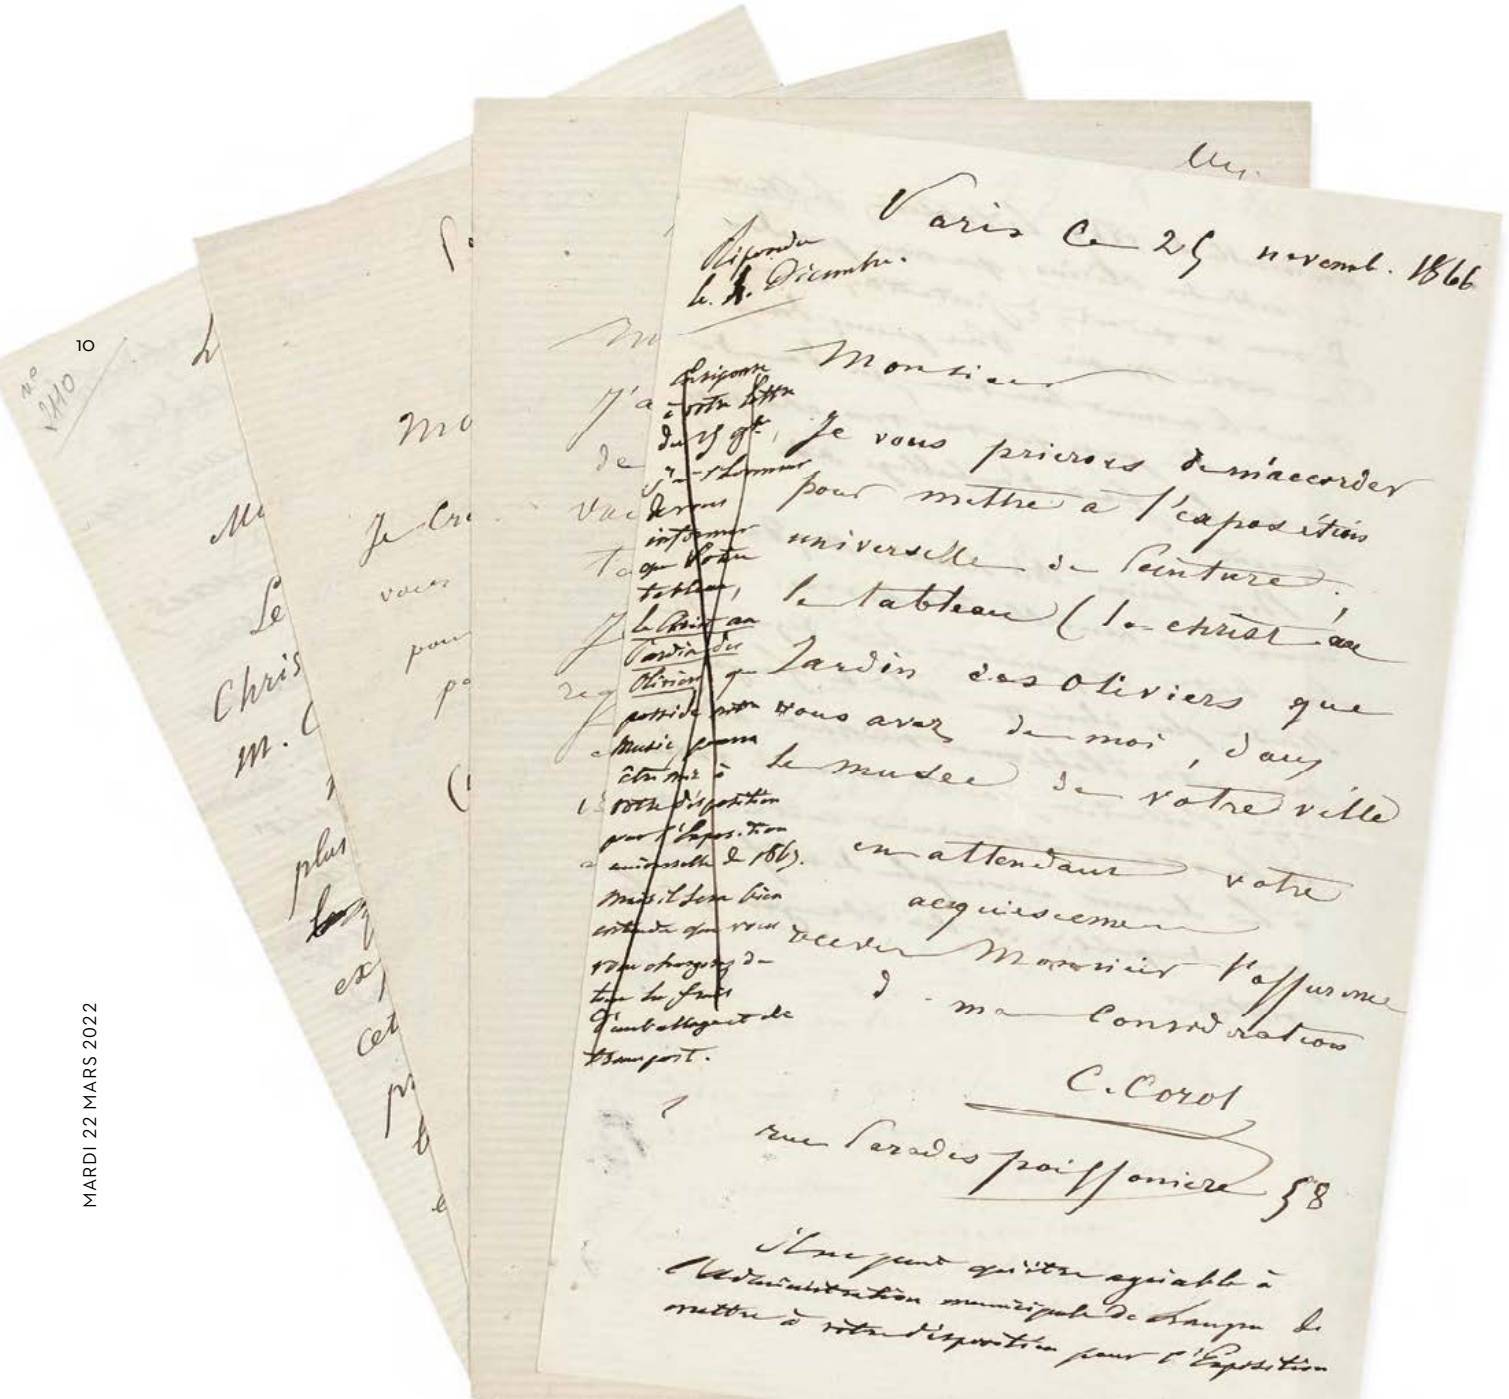 10
MARDI 22 MARS 2022
n.º
2110
Chris
plus
ex
cet
Mo
Je
vous
pour
J'a
de
Paris Ce 25 novemb. 1866
Répondu
le 4. Décembre.
Monsieur
Je vous prierois de m'accorder
pour mettre a l'exposition
universelle de Peinture
le tableau (le christ au
Jardin des Oliviers que
vous avez de moi, dans
le musee de votre ville
en attendant votre
acquiescement
recevez Monsieur l'assurance
d ma Considération
C. Corot
rue Paradis poissoniere 58
En réponse
à votre lettre
du 25 9bre,
j'ai l'honneur
de vous
informer
que votre
tableau,
le Christ au
Jardin des
Oliviers que
possède notre
Musée, pourra
être mis à
votre disposition
pour l'Exposition
universelle de 1867.
mais il sera bien
entendu que vous
vous chargerez de
tous les frais
d'emballage et de
transport.
il ne peut qu'être agréable à
l'Administration municipale de Langres de
mettre à votre disposition pour l'Exposition